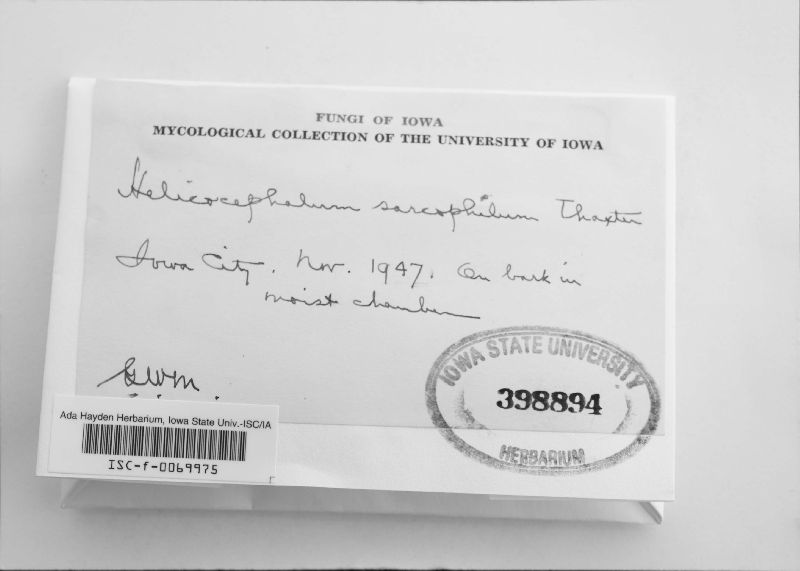 FUNGI OF IOWA
MYCOLOGICAL COLLECTION OF THE UNIVERSITY OF IOWA
Helicocephalum sarcophilum Thaxter
Iowa City. Nov. 1947. On bark in
moist chamber
GWM
IOWA STATE UNIVERSITY
398894
HERBARIUM
Ada Hayden Herbarium, Iowa State Univ.-ISC/IA
ISC-f-0069975